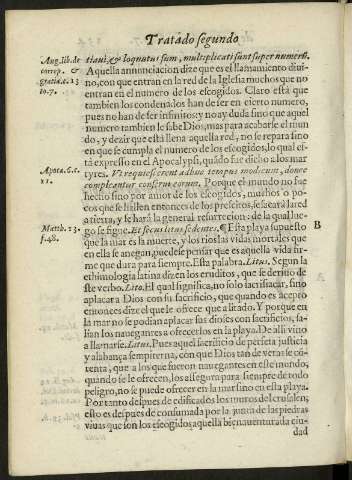 Tratado segundo
Aug. lib. de
correp. &
gratia. c. 13
to. 7.
Apoca. 6. c.
11.
Matth. 13.
f. 48.
B
tiaui, & loquutus sum, multiplicati sunt super numerũ.
Aquella annunciacion dize que es el llamamiento diui-
no, con que entran en la red de la Iglesia muchos que no
entran en el numero de los escogidos. Claro està que
tambien los condenados han de ser en cierto numero,
pues no han de ser infinitos; y no ay duda sino que aquel
numero tambien le sabe Dios; mas para acabarse el mun
do, y dezir que està llena aquella red, no se repara sino
en que se cumpla el numero de los escogidos, lo qual es-
tà expresso en el Apocalypsi, quãdo fue dicho a los mar
tyres. Vt requiescerent adhuc tempus modicum, donec
compleantur conserui eorum. Porque el mundo no fue
hecho sino por amor de los escogidos, muchos o po-
cos que se hallen entonces de los prescitos, se sacarà la red
a tierra, y se harà la general resurrecion: de la qual lue-
go se sigue. Et secus litus sedentes. ¶ Esta playa supuesto
que la mar es la muerte, y los rios las vidas mortales que
en ella se anegan, puedese pensar que es aquella vida fir-
me que dura para siempre. Esta palabra. Litus. Segun la
ethimologia latina dizen los eruditos, que se deriuo de
este verbo. Lito. El qual significa, no solo sacrificar, sino
aplacar a Dios con su sacrificio, que quando es acepto
entonces dize el que le ofrece que a litado. Y porque en
la mar no se podian aplacar sus dioses con sacrificios, sa-
lian los nauegantes a ofrecerlos en la playa. De alli vino
a llamarse. Litus. Pues aquel sacrificio de perfeta justicia
y alabança sempiterna, con que Dios tan de veras se cõ-
tenta, que a los que fueron nauegantes en este mundo,
quando se le ofrecen, los assegura para siempre de todo
peligro, no se puede ofrecer en la mar sino en esta playa.
Por tanto despues de edificados los muros del crusalen,
esto es despues de consumada por la junta de las piedras
viuas que son los escogidos aquella bienauenturada ciu-
dad